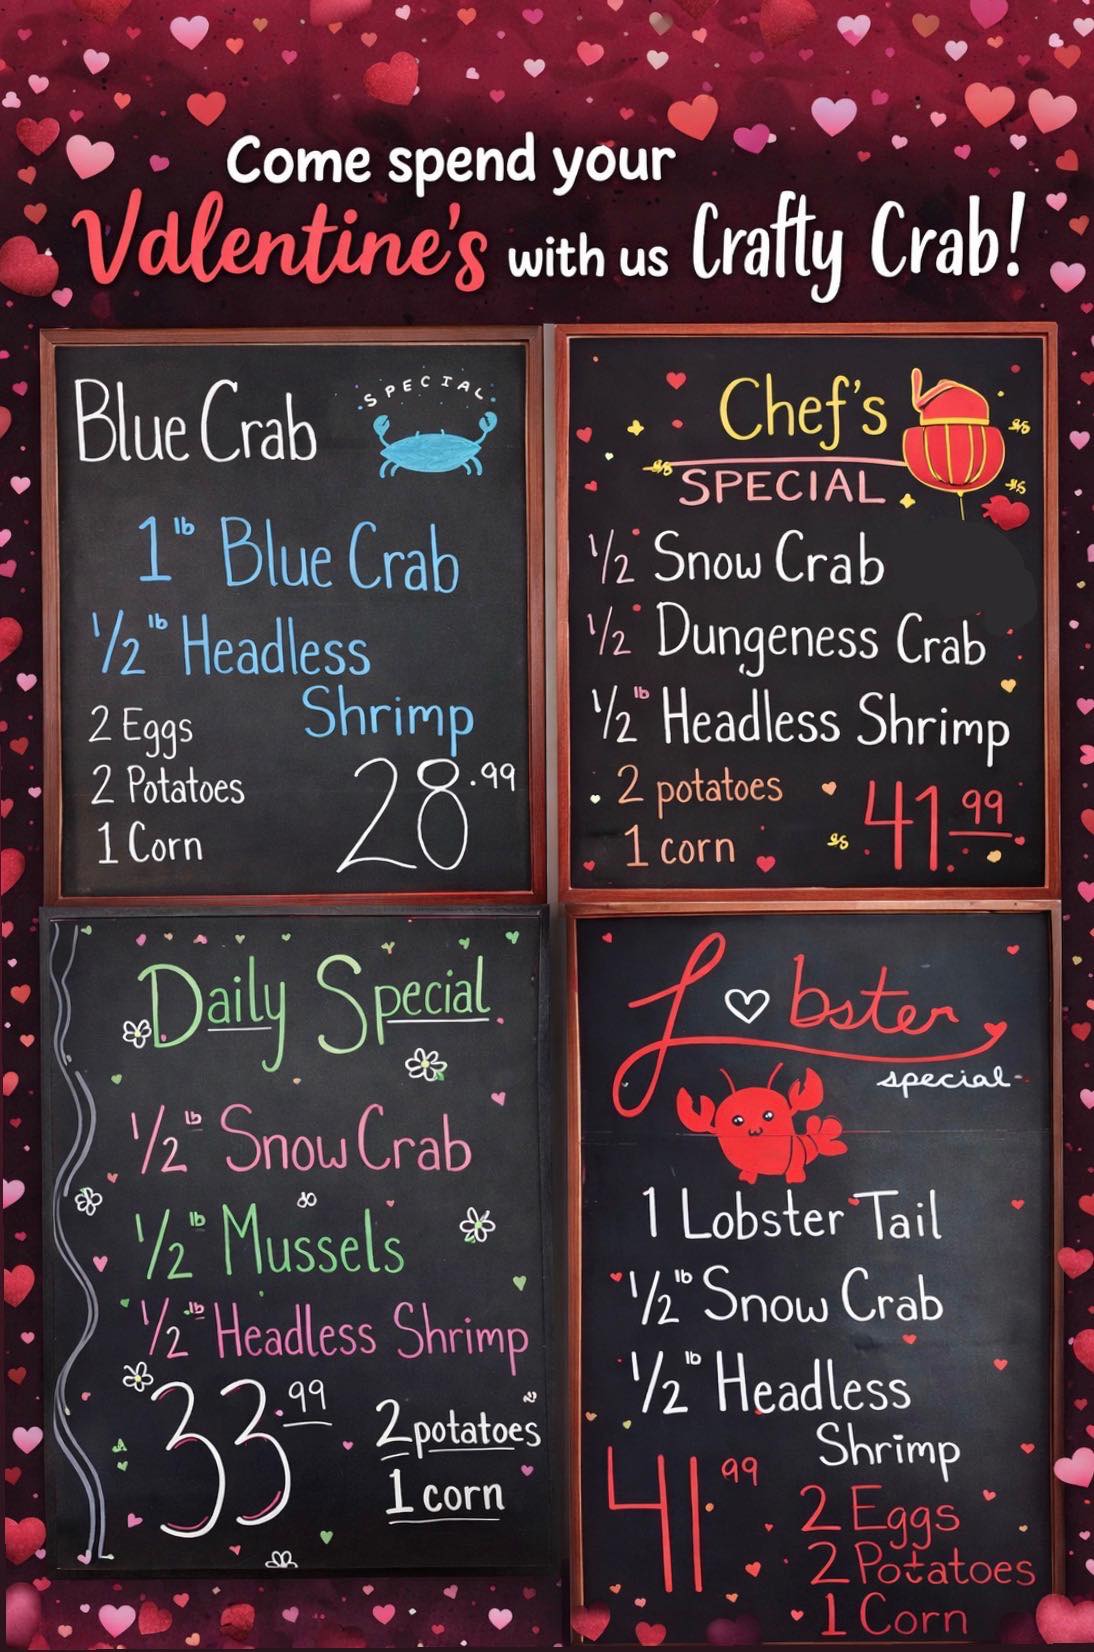 Come spend your
Valentine's with us Crafty Crab!
Blue Crab
SPECIAL
1 lb Blue Crab
1/2 lb Headless
Shrimp
2 Eggs
2 Potatoes
1 Corn
28.99
Chef's
SPECIAL
1/2 Snow Crab
1/2 Dungeness Crab
1/2 lb Headless Shrimp
2 potatoes
1 corn
41.99
Daily Special
1/2 lb Snow Crab
1/2 lb Mussels
1/2 lb Headless Shrimp
33.99
2 potatoes
1 corn
Lobster
special
1 Lobster Tail
1/2 lb Snow Crab
1/2 lb Headless
Shrimp
41 99
2 Eggs
2 Potatoes
1 Corn